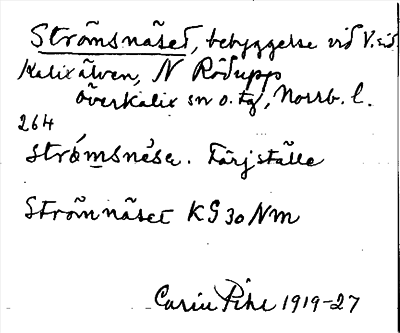 Strömsnäset, bebyggelse vid V. sid.
Kalixälven, N Rödupp
Överkalix sn o. tg, Norrb. l.
264
strömsnèse. Färjställe
Strömnäset KG 30 Nm
Carin Pihl 1919-27